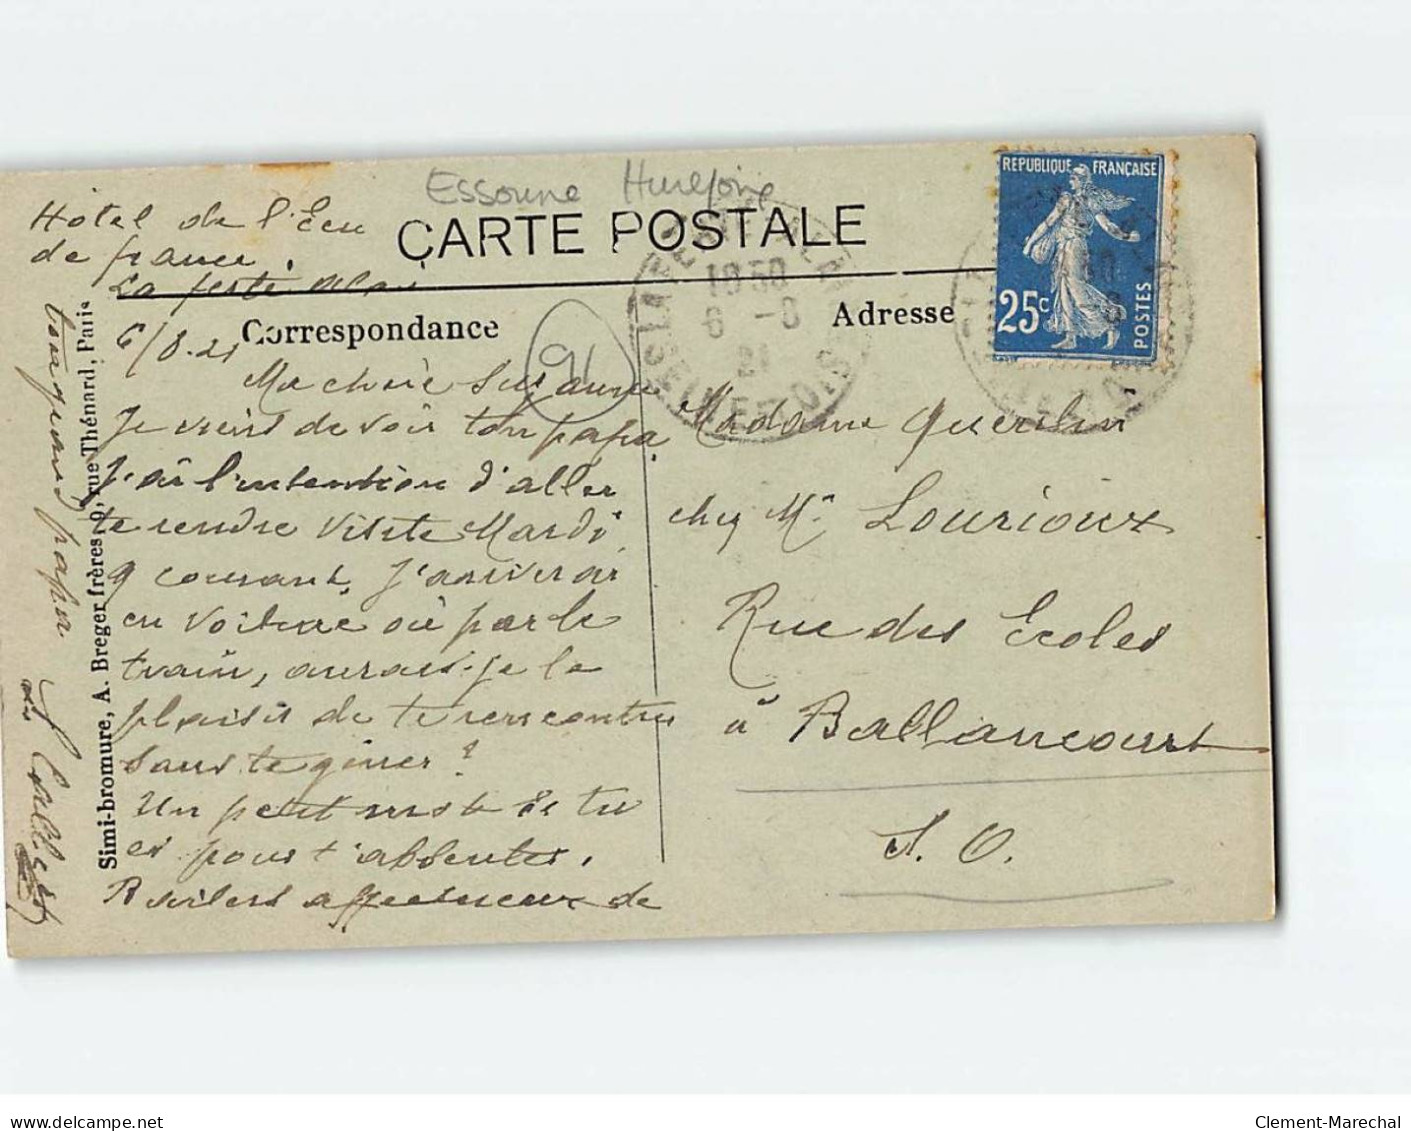 Essonne Hurepoix
Hôtel de l'Ecu
de france.
La ferté Alais
CARTE POSTALE
Correspondance
Adresse
RÉPUBLIQUE FRANÇAISE
25c
POSTES
18 50
6 -8
21
SEINE ET OISE
6/8.21
91
Ma chère Suzanne
Je viens de voir ton papa,
J'ai l'intention d'aller
te rendre visite Mardi
9 courant, J'arriverai
en voiture où par le
train, aurais-je le
plaisir de te rencontrer
sans te gêner?
Un petit mot si tu
es pour t'absenter.
Baisers affectueux de
ton grand papa
Madame Guerlin
chez Mr Lourioux
Rue des Ecoles
à Ballancourt
S. O.
Simi-bromure, A. Breger frères, 9, rue Thénard, Paris
www.delcampe.net
Clement-Marechal